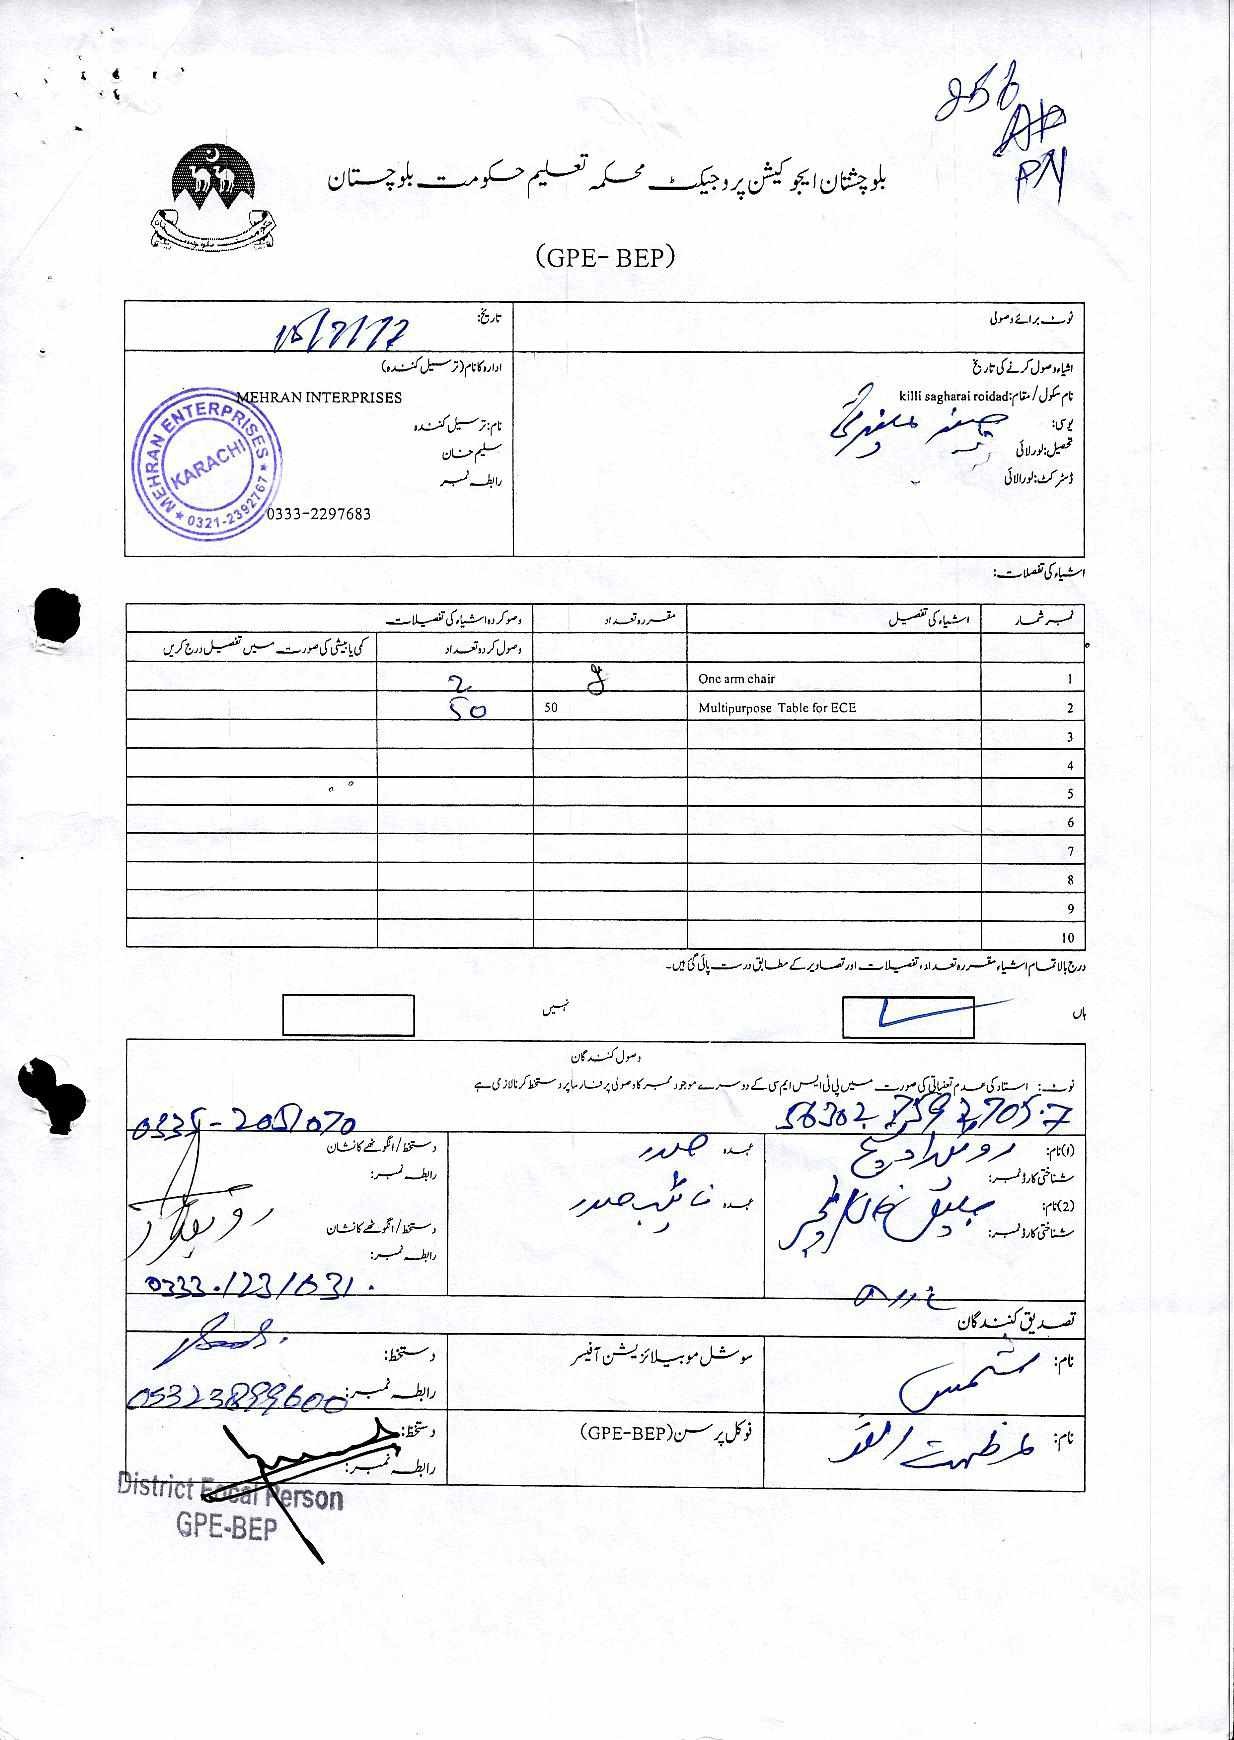 بلوچستان ایجوکیشن پروجیکٹ محکمہ تعلیم حکومت بلوچستان
(GPE- BEP)
نوٹ برائے وصولی
تاریخ:
اشیاء وصول کرنے کی تاریخ
نام سکول/مقام: killi sagharai roidad
یوسی:
تحصیل: لورالائی
ڈسٹرکٹ: لورالائی
ادارہ کا نام (ترسیل کنندہ)
MEHRAN INTERPRISES
نام: ترسیل کنندہ
سلیم خان
رابطہ نمبر
0333-2297683
MEHRAN ENTERPRISES
KARACHI
0321-2392767
اشیاء کی تفصلات:
نمبر شمار اشیاء کی تفصیل مقررہ تعداد وصو کردہ اشیاء کی تفصیلات
وصول کردہ تعداد کمی یا بیشی کی صورت میں تفصیل درج کریں
1 One arm chair 2
2 Multipurpose Table for ECE 50 50
3
4
5
6
7
8
9
10
درج بالا تمام اشیاء مقررہ تعداد، تفصیلات اور تصاویر کے مطابق درست پائی گئی ہیں۔
ہاں نہیں
وصول کنندگان
نوٹ: استاد کی عدم تعیناتی کی صورت میں پی ٹی ایس ایم سی کے دوسرے موجود ممبر کا وصولی پر فارما پر دستخط کرنا لازمی ہے
(1) نام: عہدہ صدر دستخط/انگوٹھے کا نشان
شناختی کارڈ نمبر: رابطہ نمبر:
(2) نام: عہدہ نائب صدر دستخط/انگوٹھے کا نشان
شناختی کارڈ نمبر: رابطہ نمبر:
تصدیق کنندگان
نام: شمس سوشل موبیلائزیشن آفیسر دستخط:
رابطہ نمبر: 03323899600
نام: فوکل پرسن (GPE-BEP) دستخط:
رابطہ نمبر:
District Focal Person
GPE-BEP